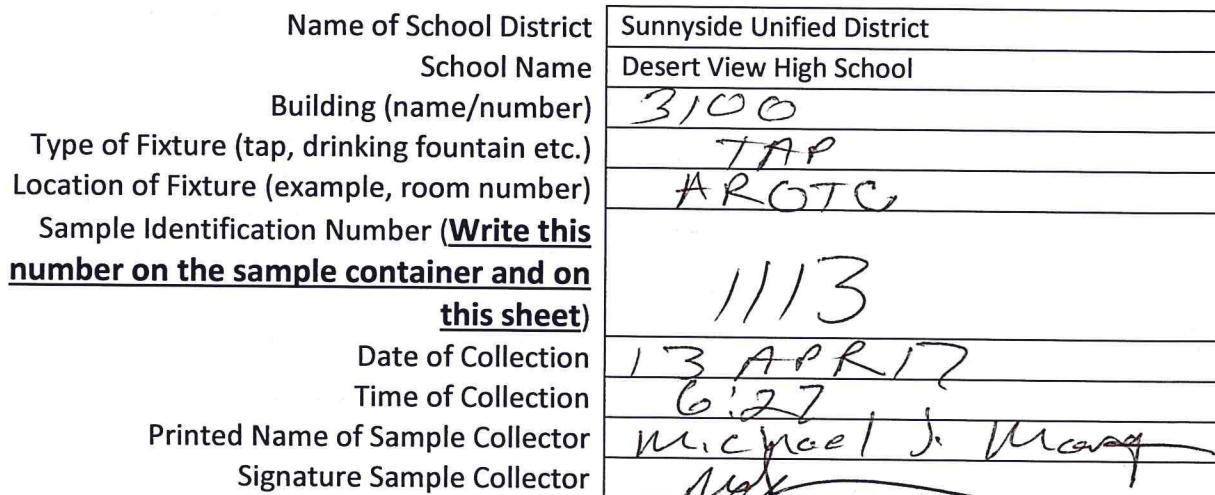 Name of School District Sunnyside Unified District
School Name Desert View High School
Building (name/number) 3100
Type of Fixture (tap, drinking fountain etc.) TAP
Location of Fixture (example, room number) AROTC
Sample Identification Number (Write this
number on the sample container and on
this sheet) 1113
Date of Collection 13 APR 17
Time of Collection 6:27
Printed Name of Sample Collector Michael J.
Signature Sample Collector